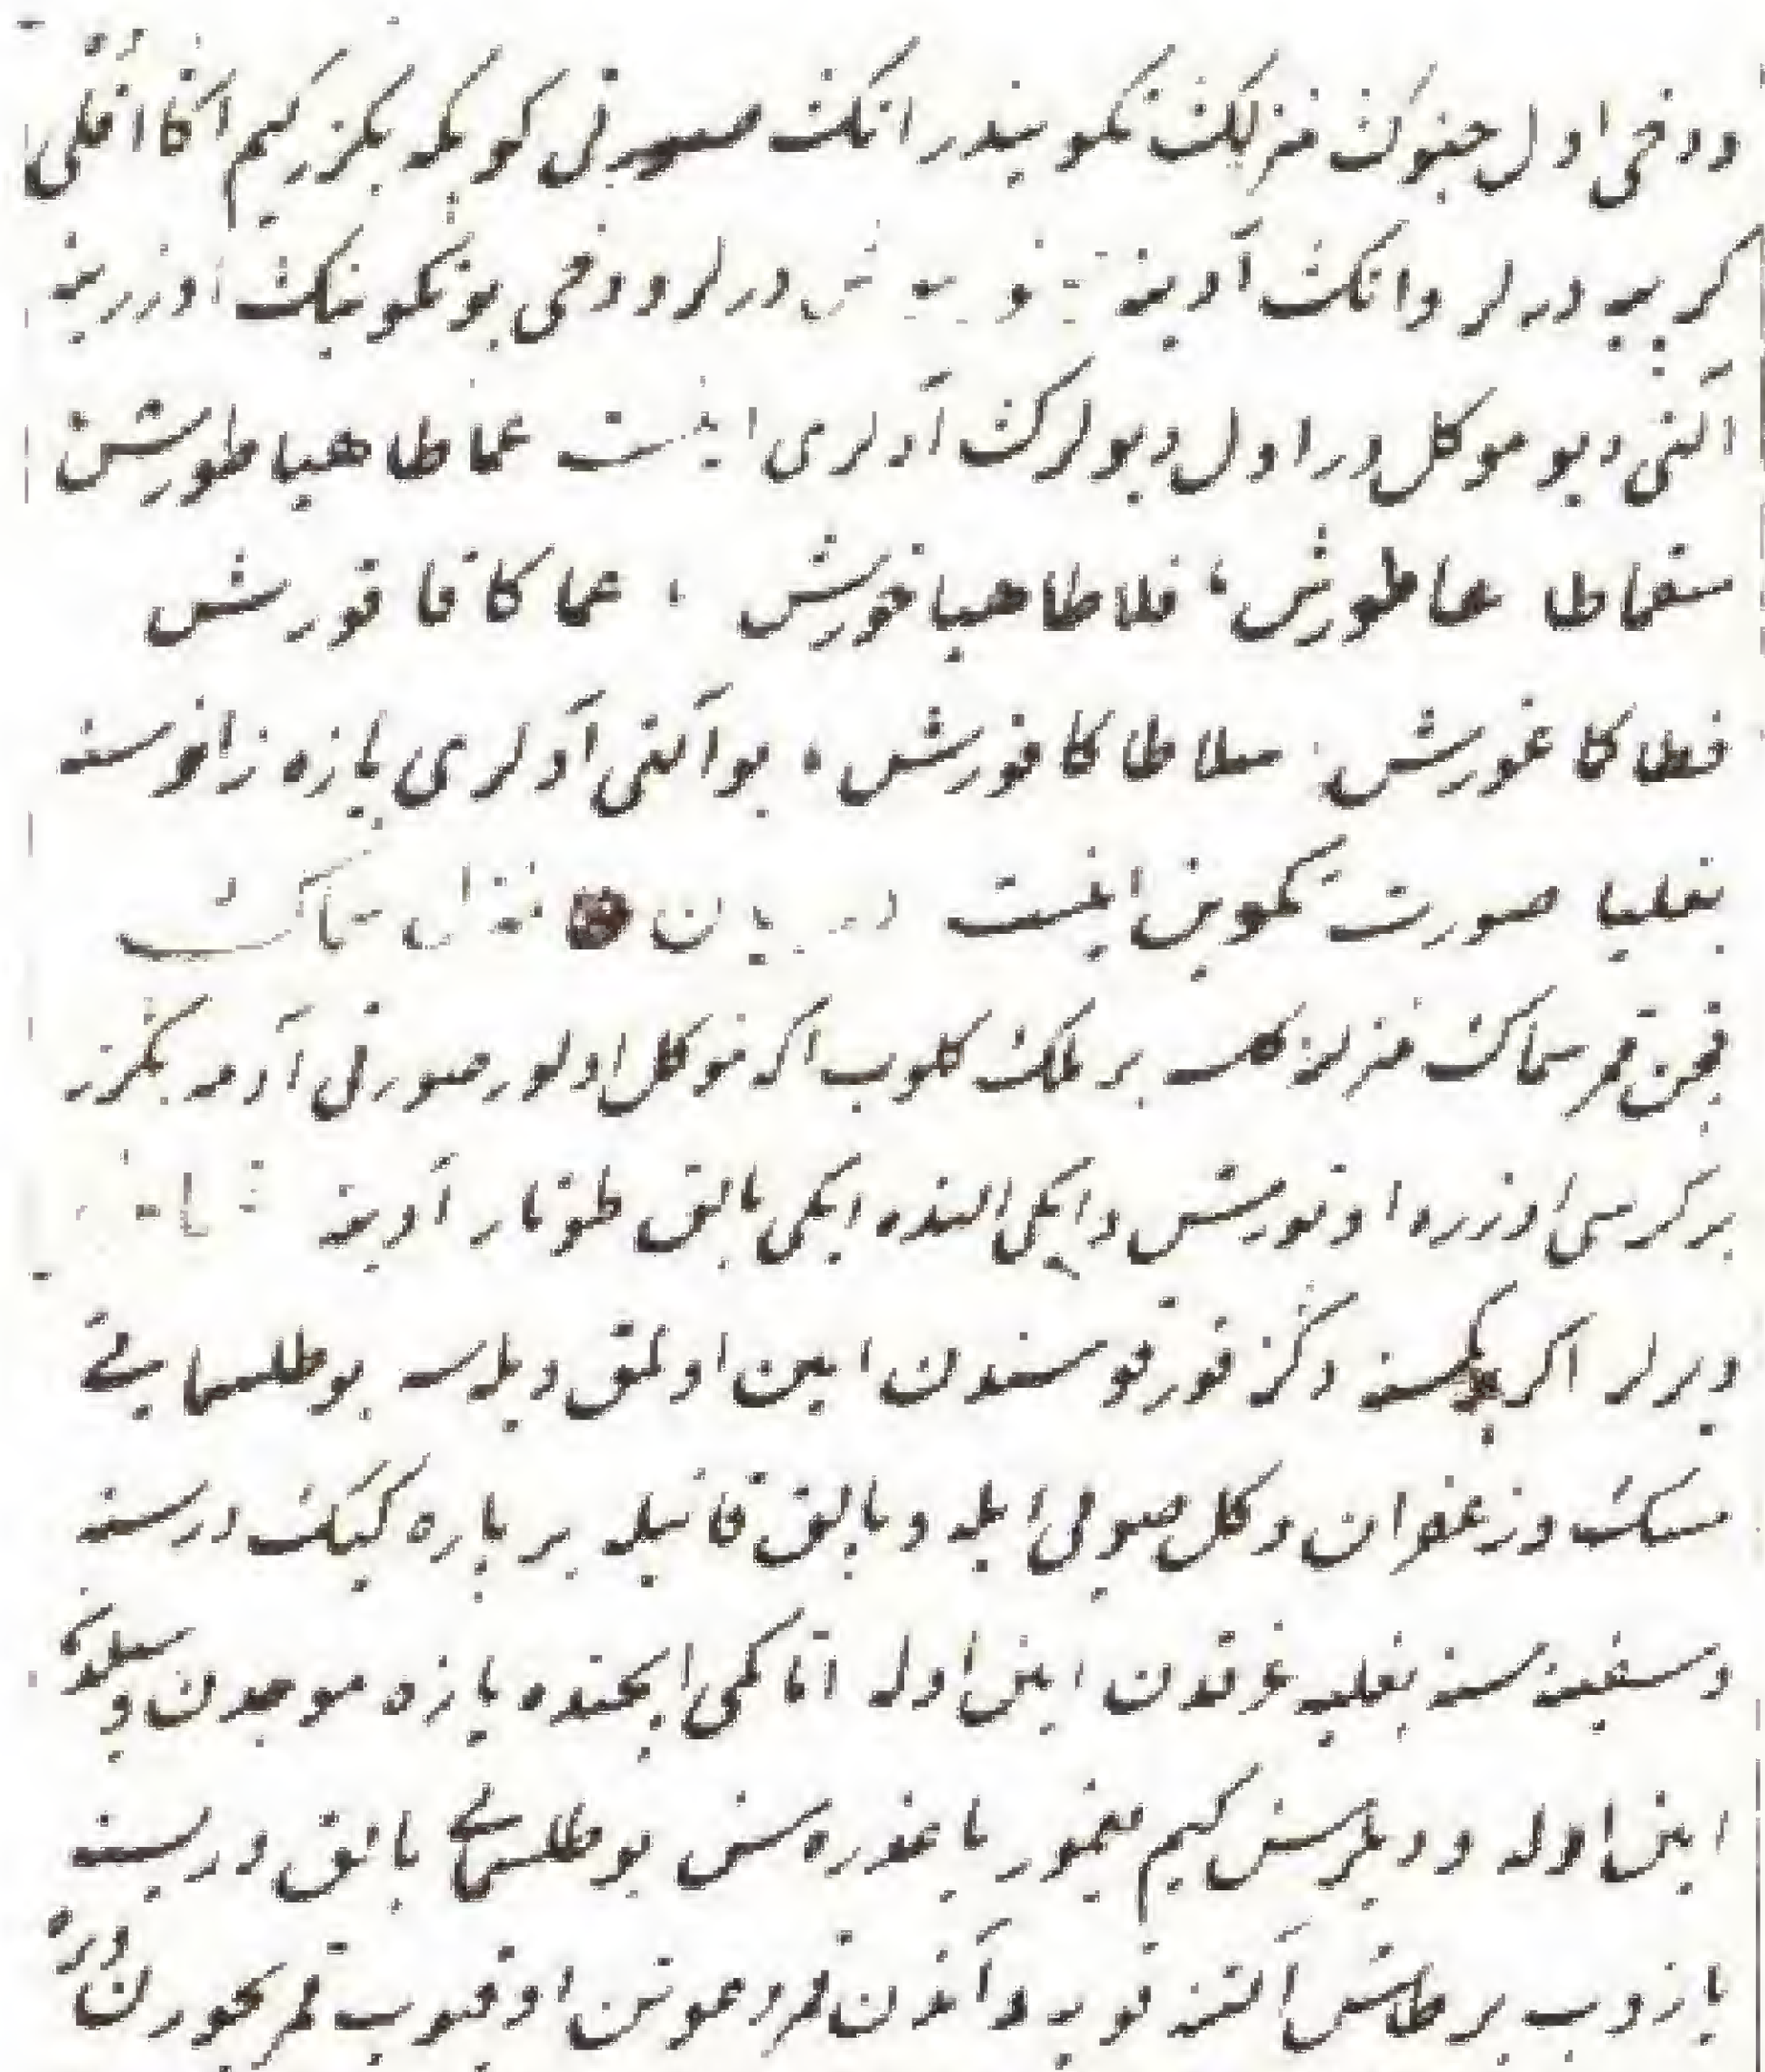 ودخی اول جنوك منزلنك تكوينيدر انك صورتی كوپكه بكزر كيم اكا افلی
كربيه ديرلر وانك آدينه ديرلر ودخی بو تكوينك اوزرينه
آلتی ديو موكل در اول ديولرك آدلری اينست عماطا هياطورش
سقماطا عاطورش ، فلاطا هياخورش ، عما كاقا قورش
فطا كا غورش ، سلاطا كا فورش ، بو آلتی آدلری يازه زاغوسنه
بغليا صورت تكوين اينست سماك
قچن قمر سماك منزلنه كلسه بر ملك كلوب اكا موكل اولور صورتی آدمه بكزر
بر كرسی اوزره اوتورمش وايكی النده ايكی بالق طوتار آدينه
ديرلر اكر بر كمسنه دكز قورقوسندن امين اولمق ديلسه بو طلسمايی
مسك وزعفران وكل صويی ايله وبالق قانيله بر پاره كيك دريسنه
وسفينه سنه بغليه غرقدن امين اوله آنا كمی ايچنده يازه موجدن ويلدن
امين اوله وديلرسن كيم يغمور ياغدوره سن بو طلسمايی بالق دريسنه
يازوب بر طاش آلتنه قويه وآندن قمر دعوتن اوقيوب قمر بخورن ويره